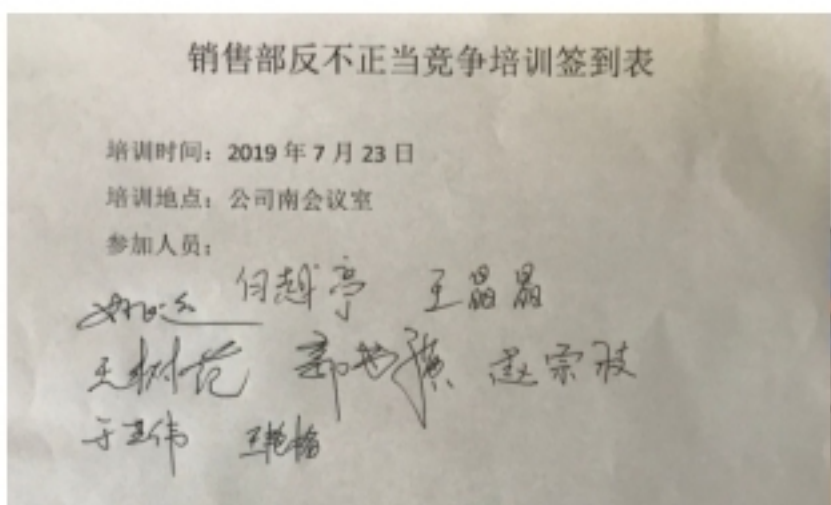 销售部反不正当竞争培训签到表
培训时间：2019 年 7 月 23 日
培训地点：公司南会议室
参加人员：
王晶晶
王树范 赵宗波
王艳梅